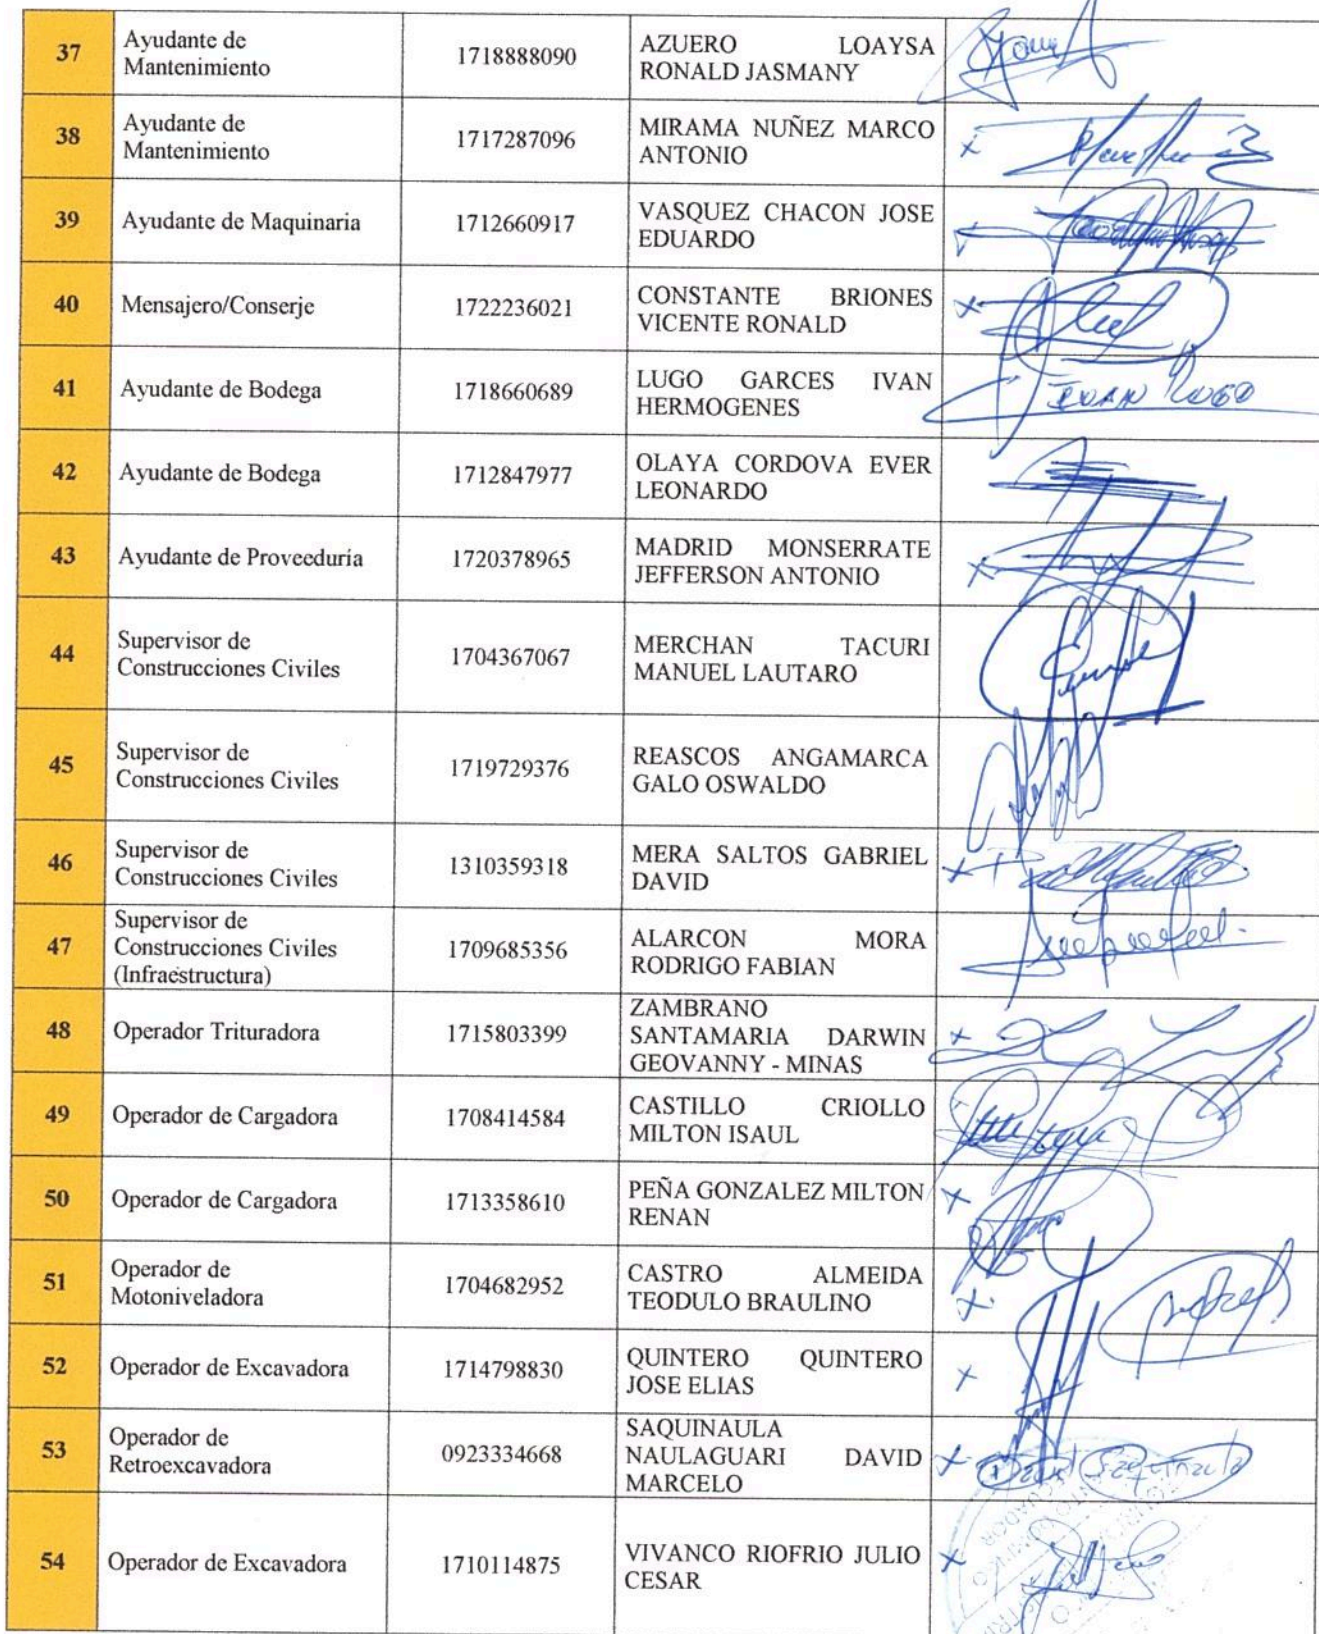 37 Ayudante de Mantenimiento 1718888090 AZUERO LOAYSA RONALD JASMANY
38 Ayudante de Mantenimiento 1717287096 MIRAMA NUÑEZ MARCO ANTONIO
39 Ayudante de Maquinaria 1712660917 VASQUEZ CHACON JOSE EDUARDO
40 Mensajero/Conserje 1722236021 CONSTANTE BRIONES VICENTE RONALD
41 Ayudante de Bodega 1718660689 LUGO GARCES IVAN HERMOGENES IVAN LUGO
42 Ayudante de Bodega 1712847977 OLAYA CORDOVA EVER LEONARDO
43 Ayudante de Proveeduria 1720378965 MADRID MONSERRATE JEFFERSON ANTONIO
44 Supervisor de Construcciones Civiles 1704367067 MERCHAN TACURI MANUEL LAUTARO
45 Supervisor de Construcciones Civiles 1719729376 REASCOS ANGAMARCA GALO OSWALDO
46 Supervisor de Construcciones Civiles 1310359318 MERA SALTOS GABRIEL DAVID
47 Supervisor de Construcciones Civiles (Infraestructura) 1709685356 ALARCON MORA RODRIGO FABIAN
48 Operador Trituradora 1715803399 ZAMBRANO SANTAMARIA DARWIN GEOVANNY - MINAS
49 Operador de Cargadora 1708414584 CASTILLO CRIOLLO MILTON ISAUL
50 Operador de Cargadora 1713358610 PEÑA GONZALEZ MILTON RENAN
51 Operador de Motoniveladora 1704682952 CASTRO ALMEIDA TEODULO BRAULINO
52 Operador de Excavadora 1714798830 QUINTERO QUINTERO JOSE ELIAS
53 Operador de Retroexcavadora 0923334668 SAQUINAULA NAULAGUARI DAVID MARCELO
54 Operador de Excavadora 1710114875 VIVANCO RIOFRIO JULIO CESAR